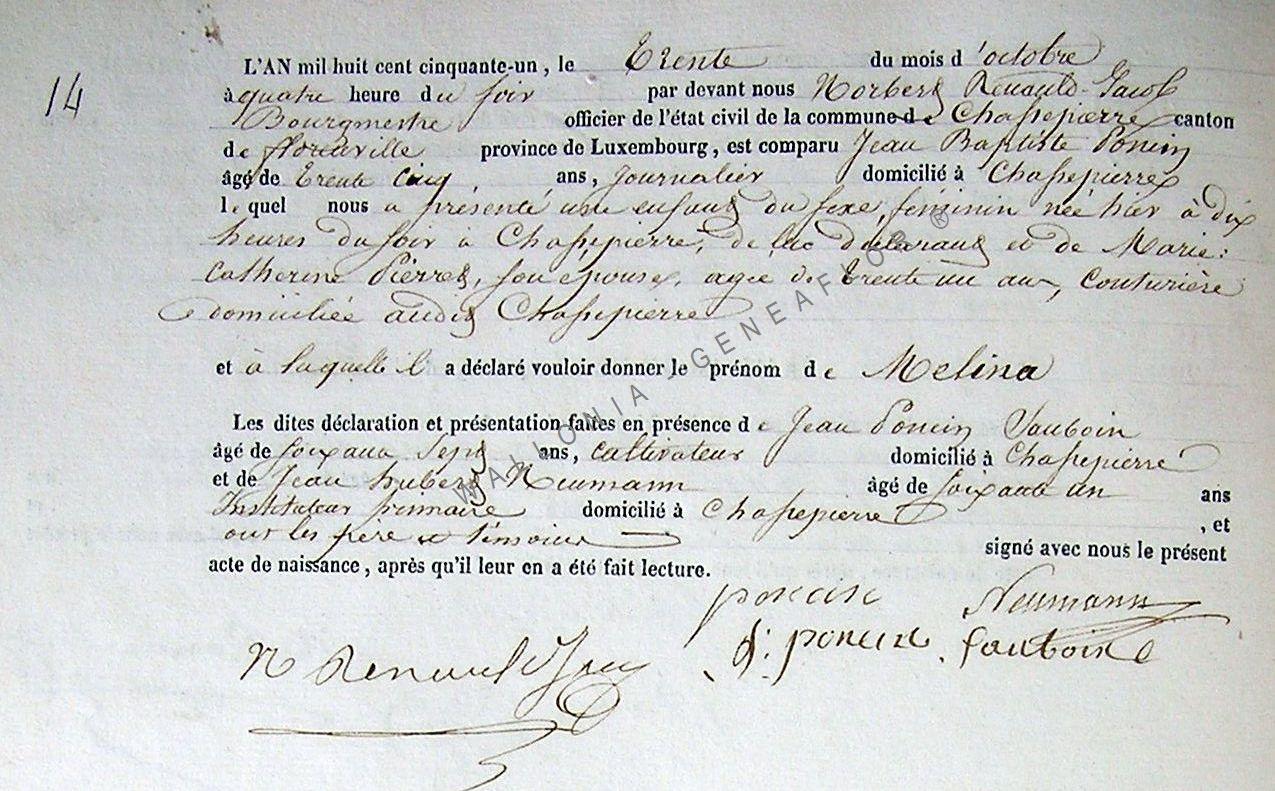 14
L'AN mil huit cent cinquante-un, le Trente du mois d'octobre
à quatre heure du soir par devant nous Norbert Renauld-Jacob
Bourgmestre officier de l'état civil de la commune de Chassepierre canton
de florenville province de Luxembourg, est comparu Jean Baptiste Poncin
âgé de trente cinq, ans, journalier domicilié à Chassepierre
lequel nous a présenté une enfant du sexe féminin née hier à dix
heures du soir à Chassepierre, de lui déclarant et de Marie:
Catherine Pierret, son épouse, agée de trente un an, couturière
domiciliée audit Chassepierre
et à laquelle il a déclaré vouloir donner le prénom de Melina
Les dites déclaration et présentation faites en présence de Jean Poncin Sauboin
âgé de soixante Sept ans, cultivateur domicilié à Chassepierre
et de Jean hubert Neumann âgé de soixante un ans
Instituteur primaire domicilié à Chassepierre, et
ont les père et témoins signé avec nous le présent
acte de naissance, après qu'il leur en a été fait lecture.
poncin Neumann
N Renauld Jacob J: poncin. sauboin
WALLONIA - GENEAFLOR ®